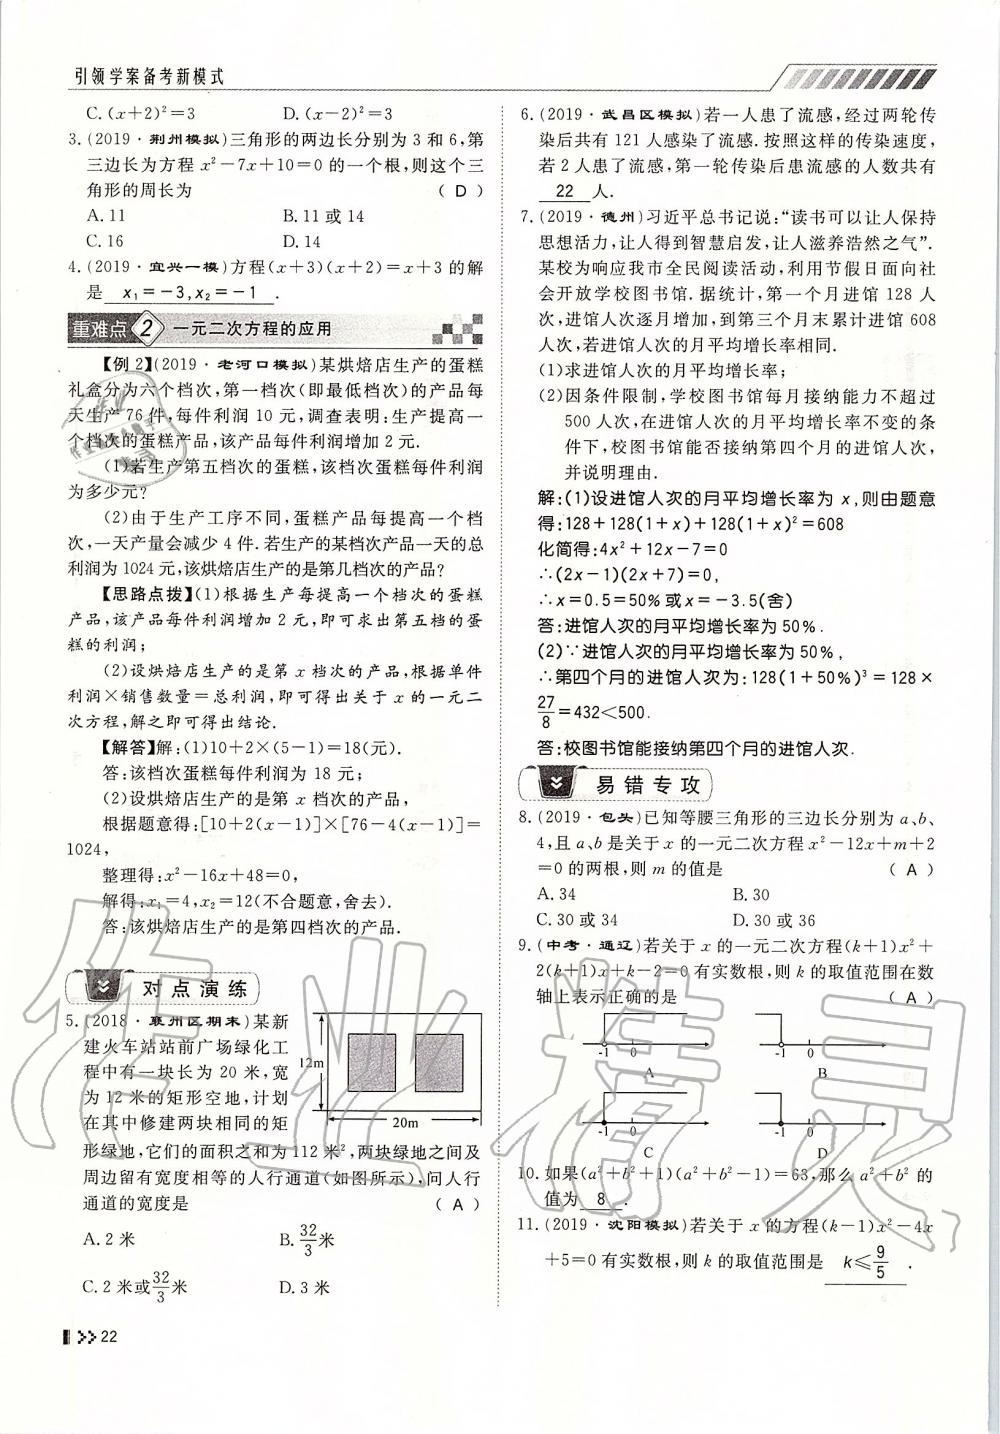 引领学案备考新模式
C.(x+2)²=3 D.(x-2)²=3
3.(2019·荆州模拟)三角形的两边长分别为3和6,第
三边长为方程x²-7x+10=0的一个根,则这个三
角形的周长为 (D)
A.11 B.11或14
C.16 D.14
4.(2019·宜兴一模)方程(x+3)(x+2)=x+3的解
是 x₁=-3,x₂=-1 .
重难点2 一元二次方程的应用
【例2】(2019·老河口模拟)某烘焙店生产的蛋糕
礼盒分为六个档次,第一档次(即最低档次)的产品每
天生产76件,每件利润10元,调查表明:生产提高一
个档次的蛋糕产品,该产品每件利润增加2元.
(1)若生产第五档次的蛋糕,该档次蛋糕每件利润
为多少元?
(2)由于生产工序不同,蛋糕产品每提高一个档
次,一天产量会减少4件.若生产的某档次产品一天的总
利润为1024元,该烘焙店生产的是第几档次的产品?
【思路点拨】(1)根据生产每提高一个档次的蛋糕
产品,该产品每件利润增加2元,即可求出第五档的蛋
糕的利润;
(2)设烘焙店生产的是第x档次的产品,根据单件
利润×销售数量=总利润,即可得出关于x的一元二
次方程,解之即可得出结论.
【解答】解:(1)10+2×(5-1)=18(元).
答:该档次蛋糕每件利润为18元;
(2)设烘焙店生产的是第x档次的产品,
根据题意得:[10+2(x-1)]×[76-4(x-1)]=
1024,
整理得:x²-16x+48=0,
解得:x₁=4,x₂=12(不合题意,舍去).
答:该烘焙店生产的是第四档次的产品.
对点演练
5.(2018·襄州区期末)某新
建火车站站前广场绿化工
程中有一块长为20米,宽
为12米的矩形空地,计划
在其中修建两块相同的矩
形绿地,它们的面积之和为112米²,两块绿地之间及
周边留有宽度相等的人行通道(如图所示),问人行
通道的宽度是 (A)
12m
20m
A.2米 B.32/3米
C.2米或32/3米 D.3米
22
6.(2019·武昌区模拟)若一人患了流感,经过两轮传
染后共有121人感染了流感.按照这样的传染速度,
若2人患了流感,第一轮传染后患流感的人数共有
22 人.
7.(2019·德州)习近平总书记说:“读书可以让人保持
思想活力,让人得到智慧启发,让人滋养浩然之气”.
某校为响应我市全民阅读活动,利用节假日面向社
会开放学校图书馆.据统计,第一个月进馆128人
次,进馆人次逐月增加,到第三个月末累计进馆608
人次,若进馆人次的月平均增长率相同.
(1)求进馆人次的月平均增长率;
(2)因条件限制,学校图书馆每月接纳能力不超过
500人次,在进馆人次的月平均增长率不变的条
件下,校图书馆能否接纳第四个月的进馆人次,
并说明理由.
解:(1)设进馆人次的月平均增长率为x,则由题意
得:128+128(1+x)+128(1+x)²=608
化简得:4x²+12x-7=0
∴(2x-1)(2x+7)=0,
∴x=0.5=50%或x=-3.5(舍)
答:进馆人次的月平均增长率为50%.
(2)∵进馆人次的月平均增长率为50%,
∴第四个月的进馆人次为:128(1+50%)³=128×
27/8=432<500.
答:校图书馆能接纳第四个月的进馆人次.
易错专攻
8.(2019·包头)已知等腰三角形的三边长分别为a、b、
4,且a、b是关于x的一元二次方程x²-12x+m+2
=0的两根,则m的值是 (A)
A.34 B.30
C.30或34 D.30或36
9.(中考·通辽)若关于x的一元二次方程(k+1)x²+
2(k+1)x+k-2=0有实数根,则k的取值范围在数
轴上表示正确的是 (A)
-1 0 -1 0
A B
-1 0 -1 0
C D
10.如果(a²+b²+1)(a²+b²-1)=63,那么a²+b²的
值为 8 .
11.(2019·沈阳模拟)若关于x的方程(k-1)x²-4x
+5=0有实数根,则k的取值范围是 k≤9/5 .
作业精灵